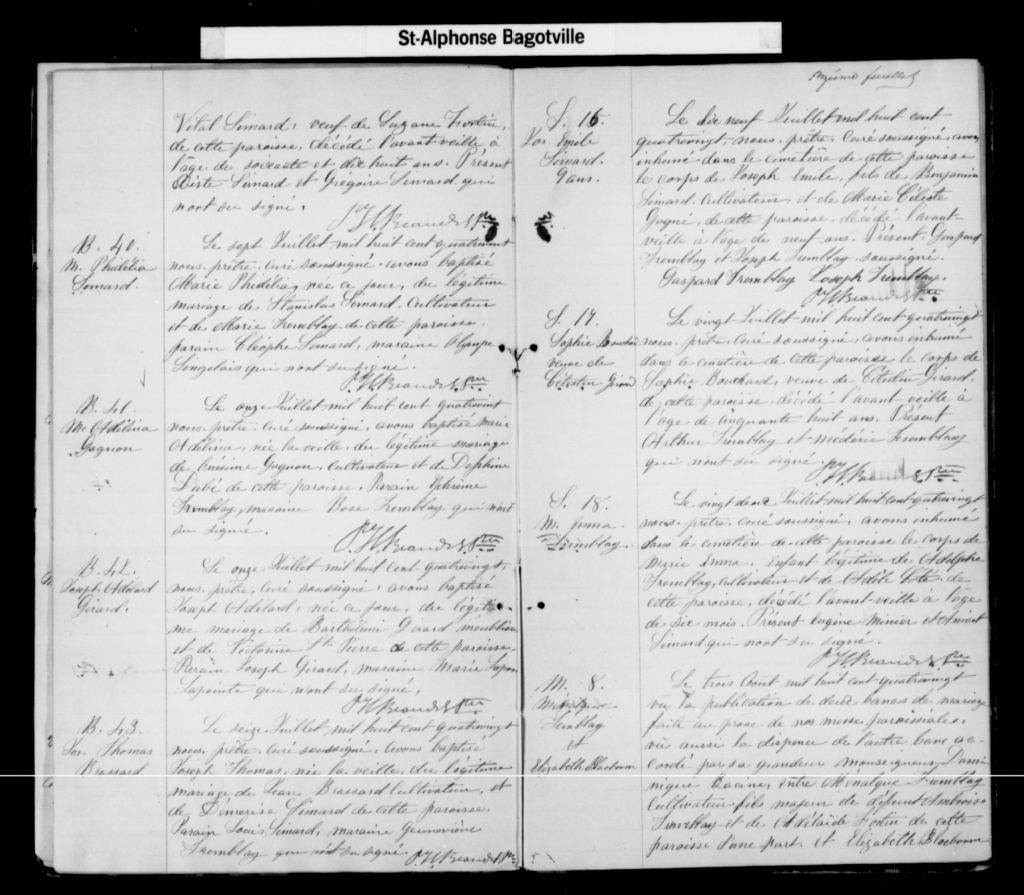 St-Alphonse Bagotville
Vital Simard, veuf de Suzane Fortin,
de cette paroisse, décédé l'avant veille, à
l'âge de soixante et dix huit ans. Présent
Simard et Grégoire Simard qui
n'ont su signé.
B. 40.
M. Phidélia
Simard.
Le sept Juillet mil huit cent quatrevint
nous, prêtre, curé soussigné, avons baptisé
Marie Phidélia, née ce jour, du légitime
mariage de Stanislas Simard, Cultivateur
et de Marie Tremblay de cette paroisse.
parain Cléophe Simard, maraine Olympe
Singelais qui n'ont su signé.
B. 41.
Me Adélina
Gagnon
Le onze Juillet mil huit cent quatrevint
nous, prêtre, curé soussigné, avons baptisée Marie
Adélina, née la veille, du légitime mariage
de Gagnon, Cultivateur et de Delphine
Labé de cette paroisse. Parain Ephrème
Tremblay, maraine Rose Tremblay qui n'ont
su signé.
B. 42.
Joseph Adélard
Girard.
Le onze Juillet mil huit cent quatrevingt,
nous, prêtre, curé soussigné, avons baptisé
Joseph Adélard, née ce jour, du légiti
me mariage de Barthélémi Girard
et de Victorine St Pierre de cette paroisse.
Parain Joseph Girard, maraine Marie
Lapointe qui n'ont su signé.
B. 43.
Jos. Thomas
Brassard
Le seize Juillet mil huit cent quatrevingt
nous, prêtre, curé soussigné, avons baptisé
Joseph Thomas, née la veille, du légitime
mariage de Jean Brassard Cultivateur, et
de Démerise Simard de cette paroisse.
Parain Louis Simard, maraine Geneviève
Tremblay qui n'ont su signé.
onzième feuillet
S. 16.
Jos. Emile
Simard.
9 ans.
Le dix neuf Juillet mil huit cent
quatrevingt, nous, prêtre, Curé soussigné, avons
enhumé dans le cimetière de cette paroisse
le corps de Joseph Emile, fils de Benjamin
Simard, Cultivateur, et de Marie Céleste
Gagné, de cette paroisse, décédé l'avant-
veille à l'âge de neuf ans. Présent Gaspard
Tremblay et Joseph Tremblay soussigné.
Gaspard Tremblay Joseph Tremblay.
S. 17.
Sophie Bouchard
veuve de
Célestin Girard
Le vingt Juillet mil huit cent quatrevingt
nous, prêtre, curé soussigné, avons enhumé
dans le cimetière de cette paroisse le corps de
Sophie Bouchard, veuve de Célestin Girard.
de cette paroisse, décédé l'avant veille à
l'âge de cinquante huit ans. Présent
Arthur Tremblay et Médéric Tremblay
qui n'ont su signé.
S. 18.
M. Emma
Tremblay.
Le vingt deux Juillet mil huit cent quatrevingt
nous, prêtre, curé soussigné, avons enhumé
dans le cimetière de cette paroisse le corps de
Marie Emma, enfant légitime de Adolphe
Tremblay, Cultivateur et de Adèle Côté de
cette paroisse, décédé l'avant-veille à l'âge
de six mois. Présent Eugène Minier et
Simard qui n'ont su signé.
M. 8.
Tremblay
et
Elizabeth Blacbonn
Le trois Aout mil huit cent quatrevingt
vu la publication de deux bancs de mariage
faite au prone de nos messe paroissiales,
vu aussi la dispence de l'autre banc ac-
cordé par sa grandeur Monseigneur Domi-
nique Racine, entre Ménalque Tremblay
Cultivateur fils majeur de défunt Ambroise
Tremblay et de Adélaïde Fortin de cette
paroisse d'une part, et Elizabeth Blacbonn